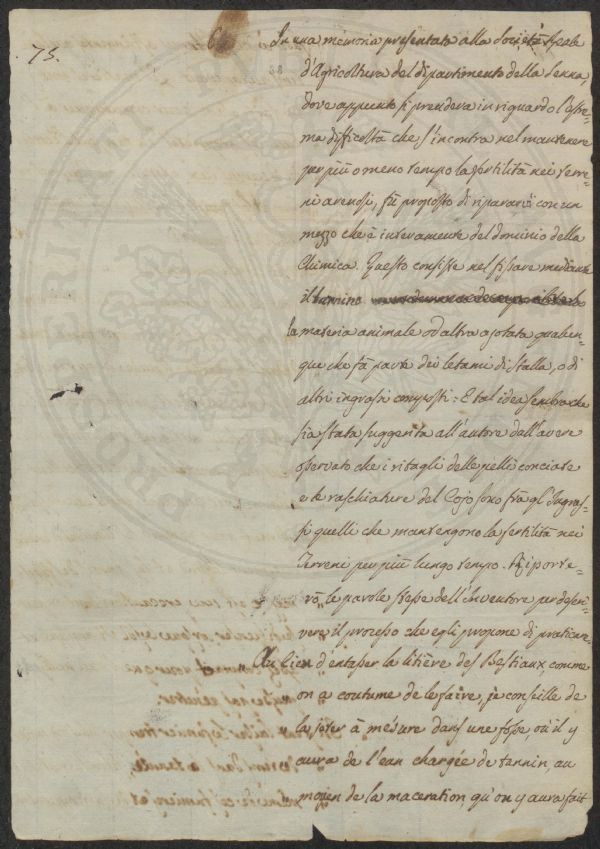 75.
6
In una memoria presentata alla Società Reale
d'Agricoltura del dipartimento della Senna,
dove appunto si prendeva in riguardo l'estre-
ma difficoltà che s'incontra nel mantenere
per più o meno tempo la fertilità nei terre-
ni arenosi, fù proposto di ripararci con un
mezzo che è interamente del dominio della
Chimica. Questo consiste nel fissare mediante
il tannino
la materia animale od altra azotata qualun-
que che fà parte dei letami di stalla, o di
altri ingrassi composti: E tal idea sembra che
sia stata suggerita all'autore dall'avere
osservato che i ritagli delle pelli conciate
e le raschiature del Cojo sono frà gl'Ingras-
si quelli che mantengono la fertilità nei
Terreni per più lungo tempo. Riporte-
rò le parole stesse dell'Inventore per descri-
vere il processo che egli propone di praticare.
Au lieu d'entasser la litière des Bestiaux, comme
on a coutume de le faire, je conseille de
" la jeter à mésure dans une fosse, où il y
" aura de l'eau chargée de tannin, au
" moyen de la maceration qu'on y aura fait